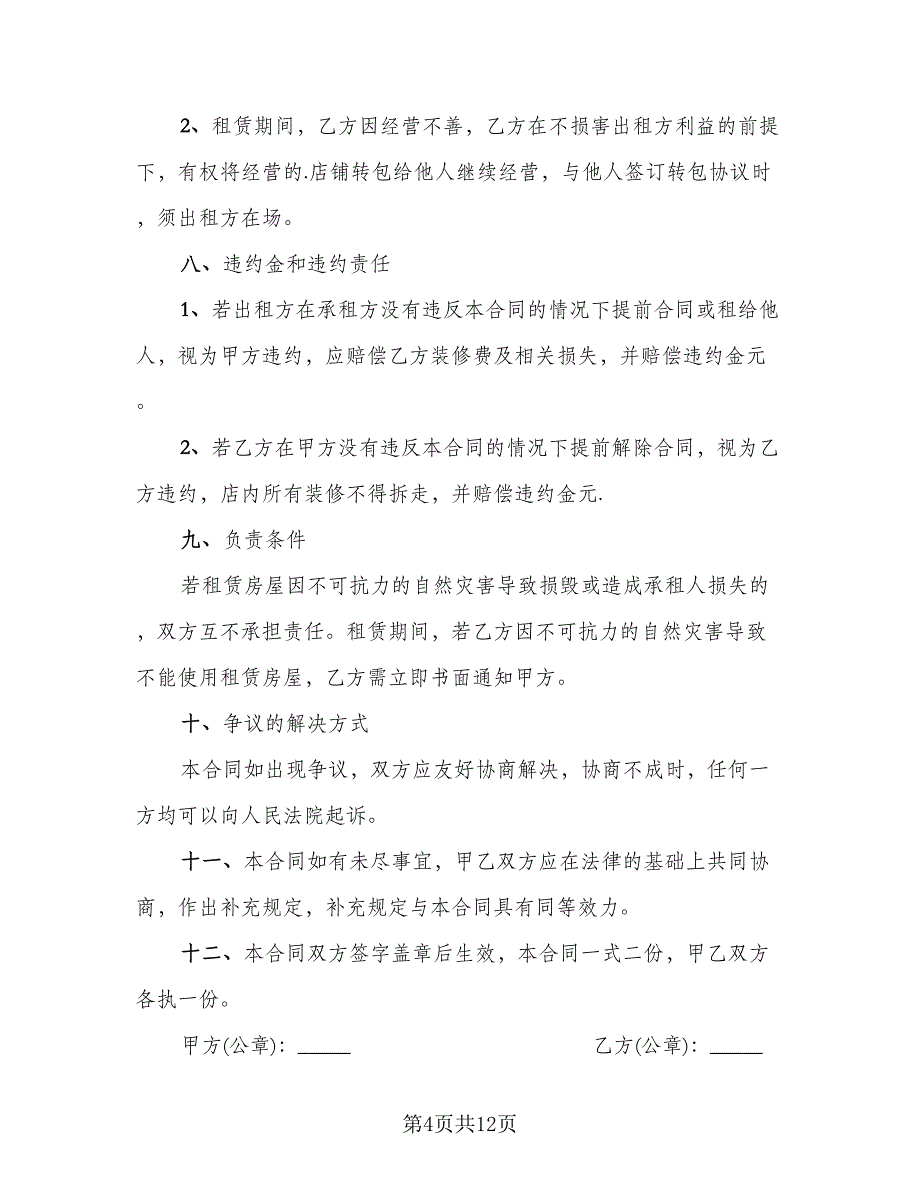 2、租赁期间，乙方因经营不善，乙方在不损害出租方利益的前提
下，有权将经营的.店铺转包给他人继续经营，与他人签订转包协议时
，须出租方在场。
八、违约金和违约责任
1、若出租方在承租方没有违反本合同的情况下提前合同或租给他
人，视为甲方违约，应赔偿乙方装修费及相关损失，并赔偿违约金元
。
2、若乙方在甲方没有违反本合同的情况下提前解除合同，视为乙
方违约，店内所有装修不得拆走，并赔偿违约金元.
九、负责条件
若租赁房屋因不可抗力的自然灾害导致损毁或造成承租人损失的
，双方互不承担责任。租赁期间，若乙方因不可抗力的自然灾害导致
不能使用租赁房屋，乙方需立即书面通知甲方。
十、争议的解决方式
本合同如出现争议，双方应友好协商解决，协商不成时，任何一
方均可以向人民法院起诉。
十一、本合同如有未尽事宜，甲乙双方应在法律的基础上共同协
商，作出补充规定，补充规定与本合同具有同等效力。
十二、本合同双方签字盖章后生效，本合同一式二份，甲乙双方
各执一份。
甲方(公章)：_____ 乙方(公章)：_____
第4页共12页